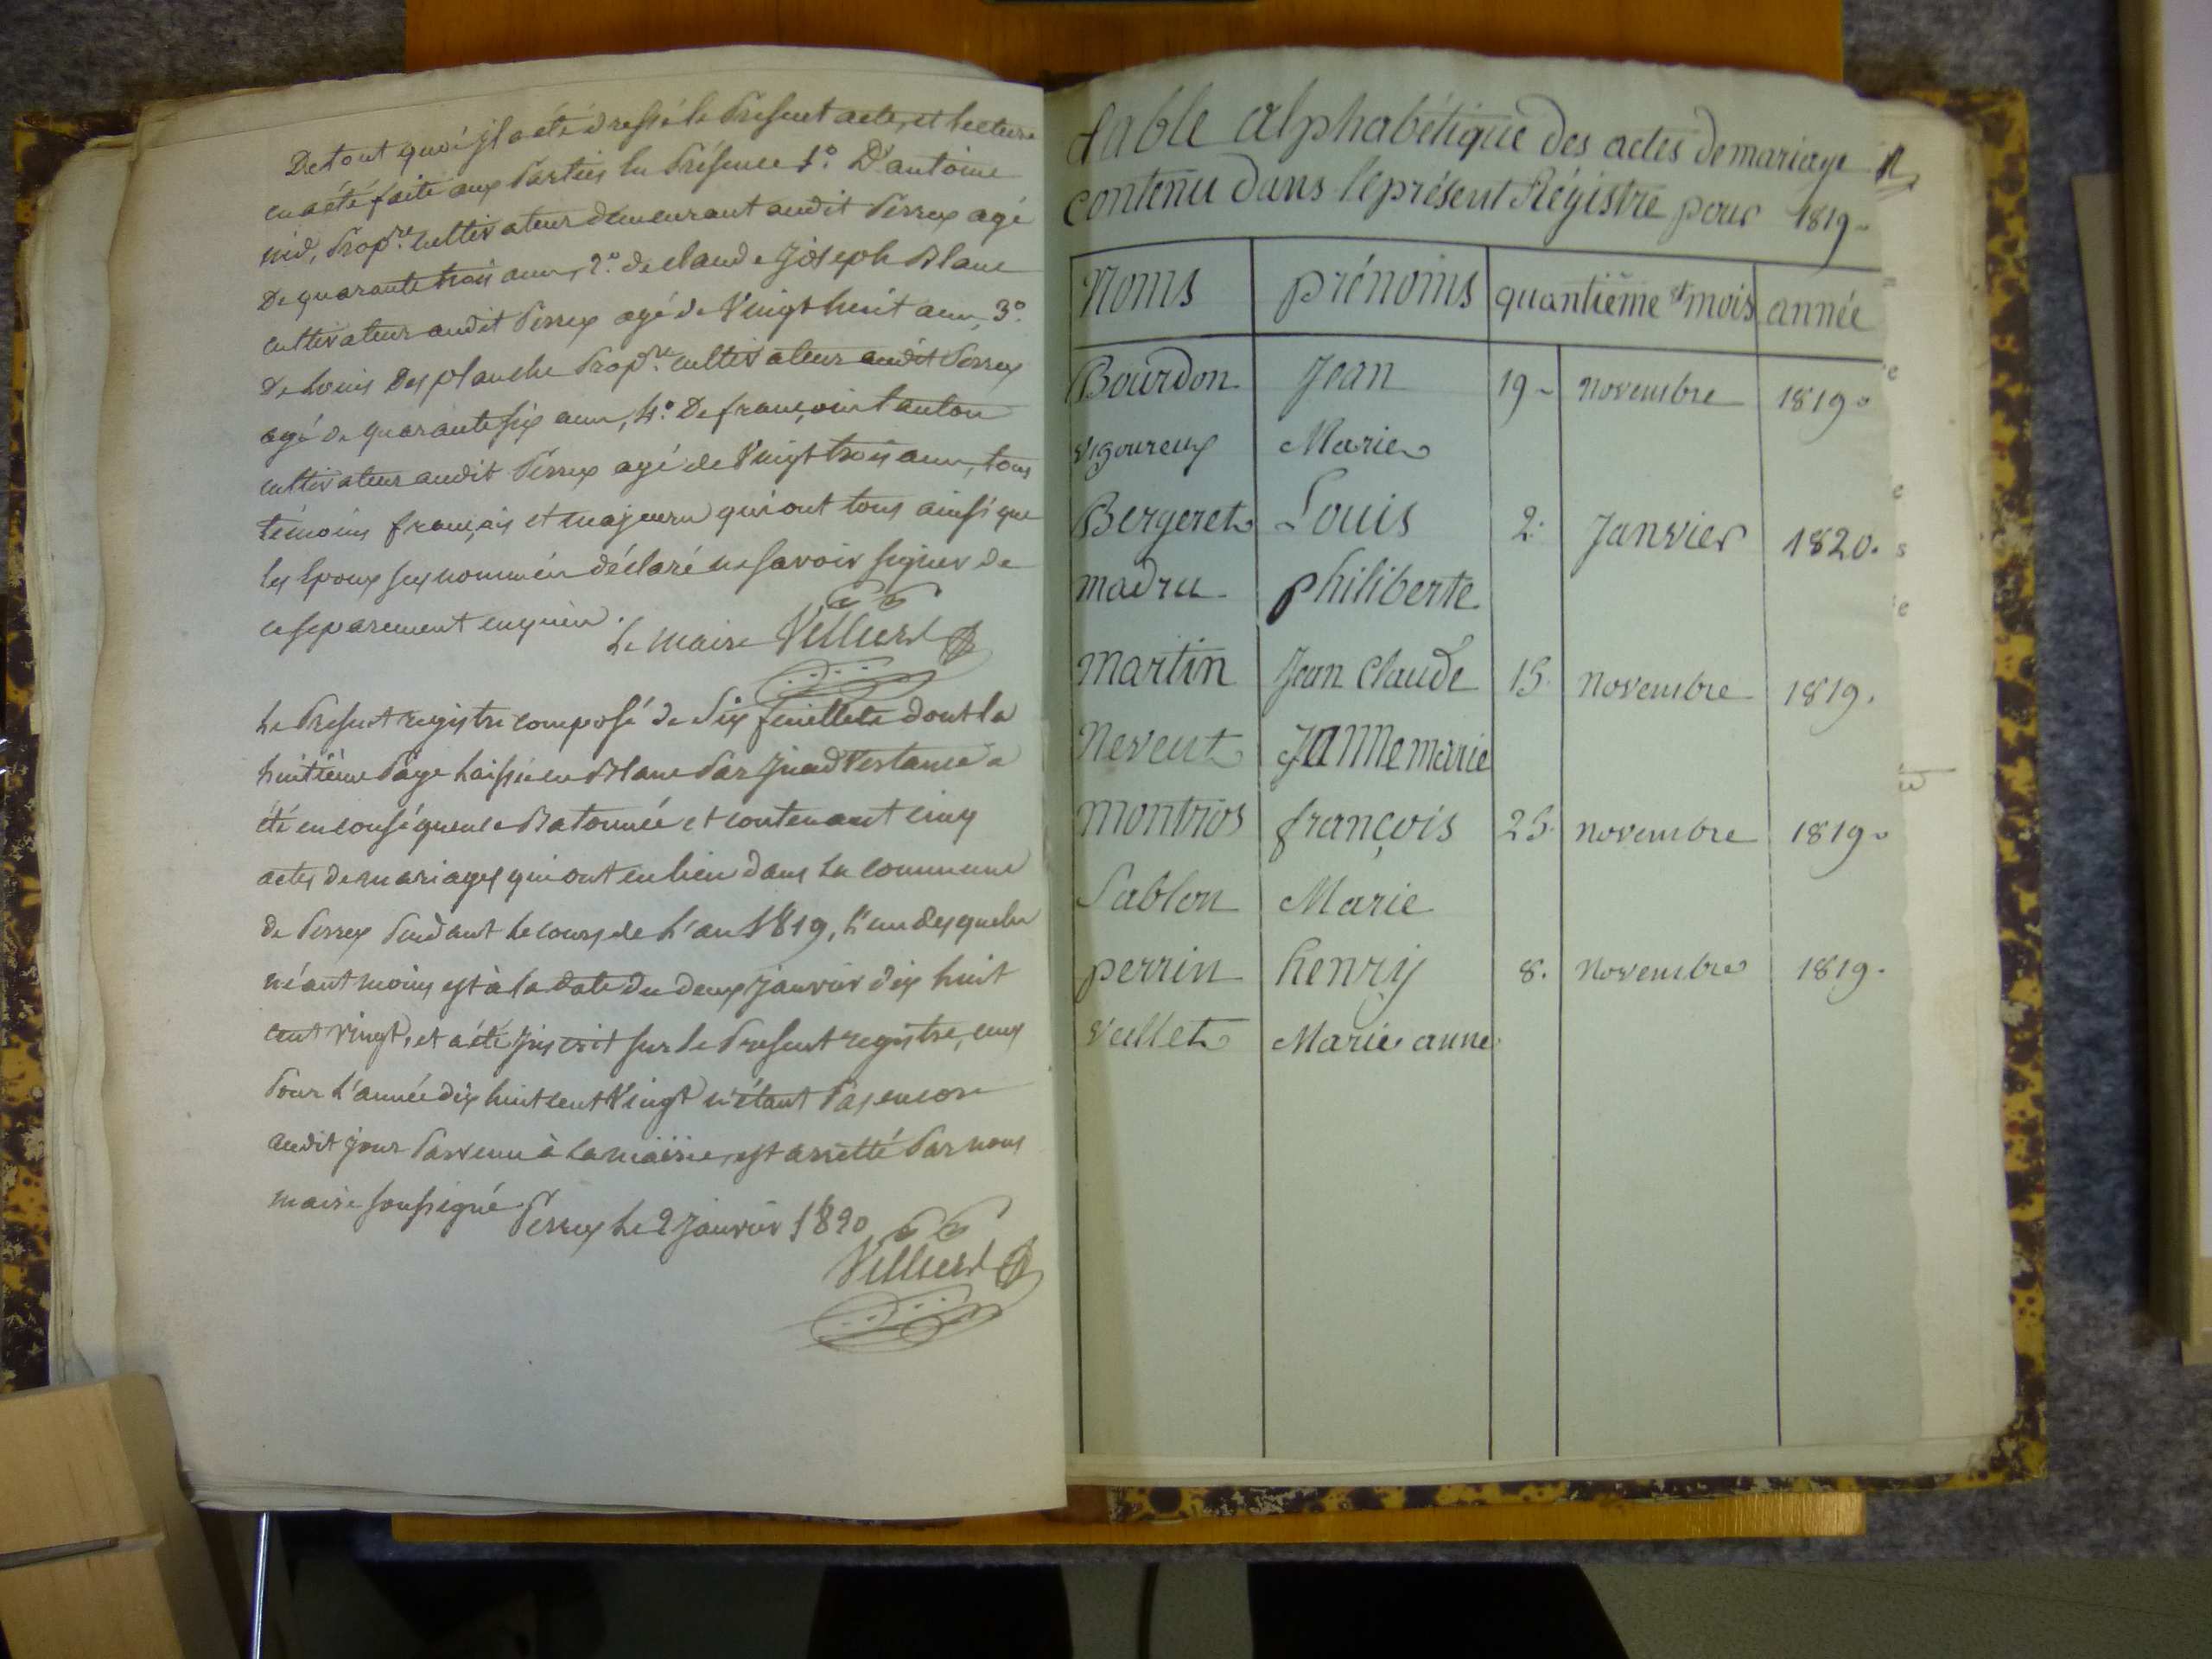 De tout quoi il a été dressé le présent acte, et lecture
en a été faite aux parties en présence 1.º D'antoine
nid, prop.re cultivateur demeurant audit Perrex agé
De quarante trois ans, 2.º de claude Joseph Blanc
cultivateur audit Perrex agé de Vingt huit ans, 3.º
De Louis Desplanche prop.re cultivateur audit Perrex
agé de quarante six ans, 4.º De françois tanton
cultivateur audit Perrex agé de Vingt trois ans, tous
témoins français et majeurs qui ont tous ainsi que
les Epoux susnommés déclaré ne savoir signer de
ce séparement enquis.
Le maire Villierd
Le présent registre composé de Six feuillets dont la
huitième page laissée en Blanc par inadvertance a
été en conséquence Batonnée et contenant cinq
actes de mariages qui ont eu lieu dans la commune
de Perrex pendant le cours de l'an 1819, l'un desquels
néantmoins est à la date du deux janvier dix huit
cent vingt, et a été inscrit sur le présent registre, ceux
pour l'année dix huit cent Vingt n'étant pas encore
audit jour parvenu à la mairie, est arretté par nous
maire soussigné
Perrex le 2 janvier 1820
Villierd
table alphabétique des actes de mariage
contenu dans le présent Régistre pour 1819
Noms prénoms quantième et mois année
Bourdon Jean 19 novembre 1819
vigoureux Marie
Bergeret Louis 2. Janvier 1820.
madru philiberte
martin Jean Claude 15. novembre 1819.
Neveut Jannemarie
montros françois 25. novembre 1819
Sablon Marie
perrin henry 8. novembre 1819.
vullet Marie anne